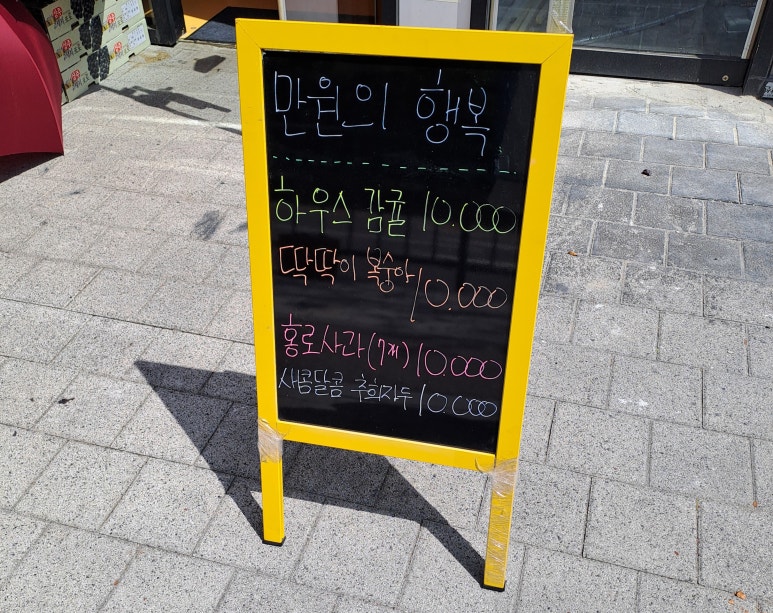 만원의 행복
하우스 감귤 10.000
딱딱이 복숭아 10.000
홍로사과(7개) 10.000
새콤달콤 추희자두 10.000